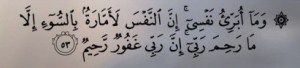 ۞ وَمَا أُبَرِّئُ نَفْسِىٓ ۚ إِنَّ ٱلنَّفْسَ لَأَمَّارَةٌۢ بِٱلسُّوٓءِ إِلَّا
مَا رَحِمَ رَبِّىٓ ۚ إِنَّ رَبِّى غَفُورٌ رَّحِيمٌ ٥٣